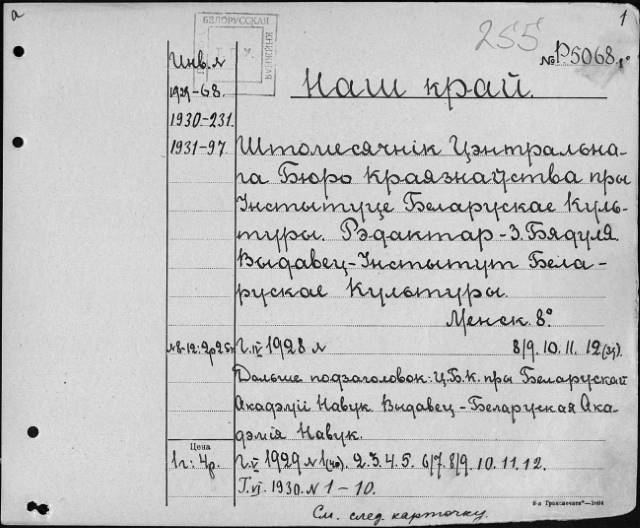 а
1
БЕЛОРУССКАЯ
КНИЖНАЯ
255
№ Р5068
Инв. №
1929-68.
1930-231.
1931-97
Наш край.
Штомесячнік Цэнтральна-
га Бюро Краязнаўства пры
Інстытуце Беларускае Куль-
туры. Рэдактар - З. Бядуля
Выдавец - Інстытут Бела-
рускае Культуры.
Менск. 8°
№8-12: 2р25к
Г. IV 1928 №
8/9. 10. 11. 12
Дальше подзаголовок: Ц.Б.К. пры Беларускай
Акадэміі Навук. Выдавец - Беларуская Ака-
дэмія Навук.
Цена
1г: 4р.
Г. V 1929 №1(40). 2. 3. 4. 5. 6/7. 8/9. 10. 11. 12.
Г. VI. 1930. № 1 - 10.
См. след. карточку.